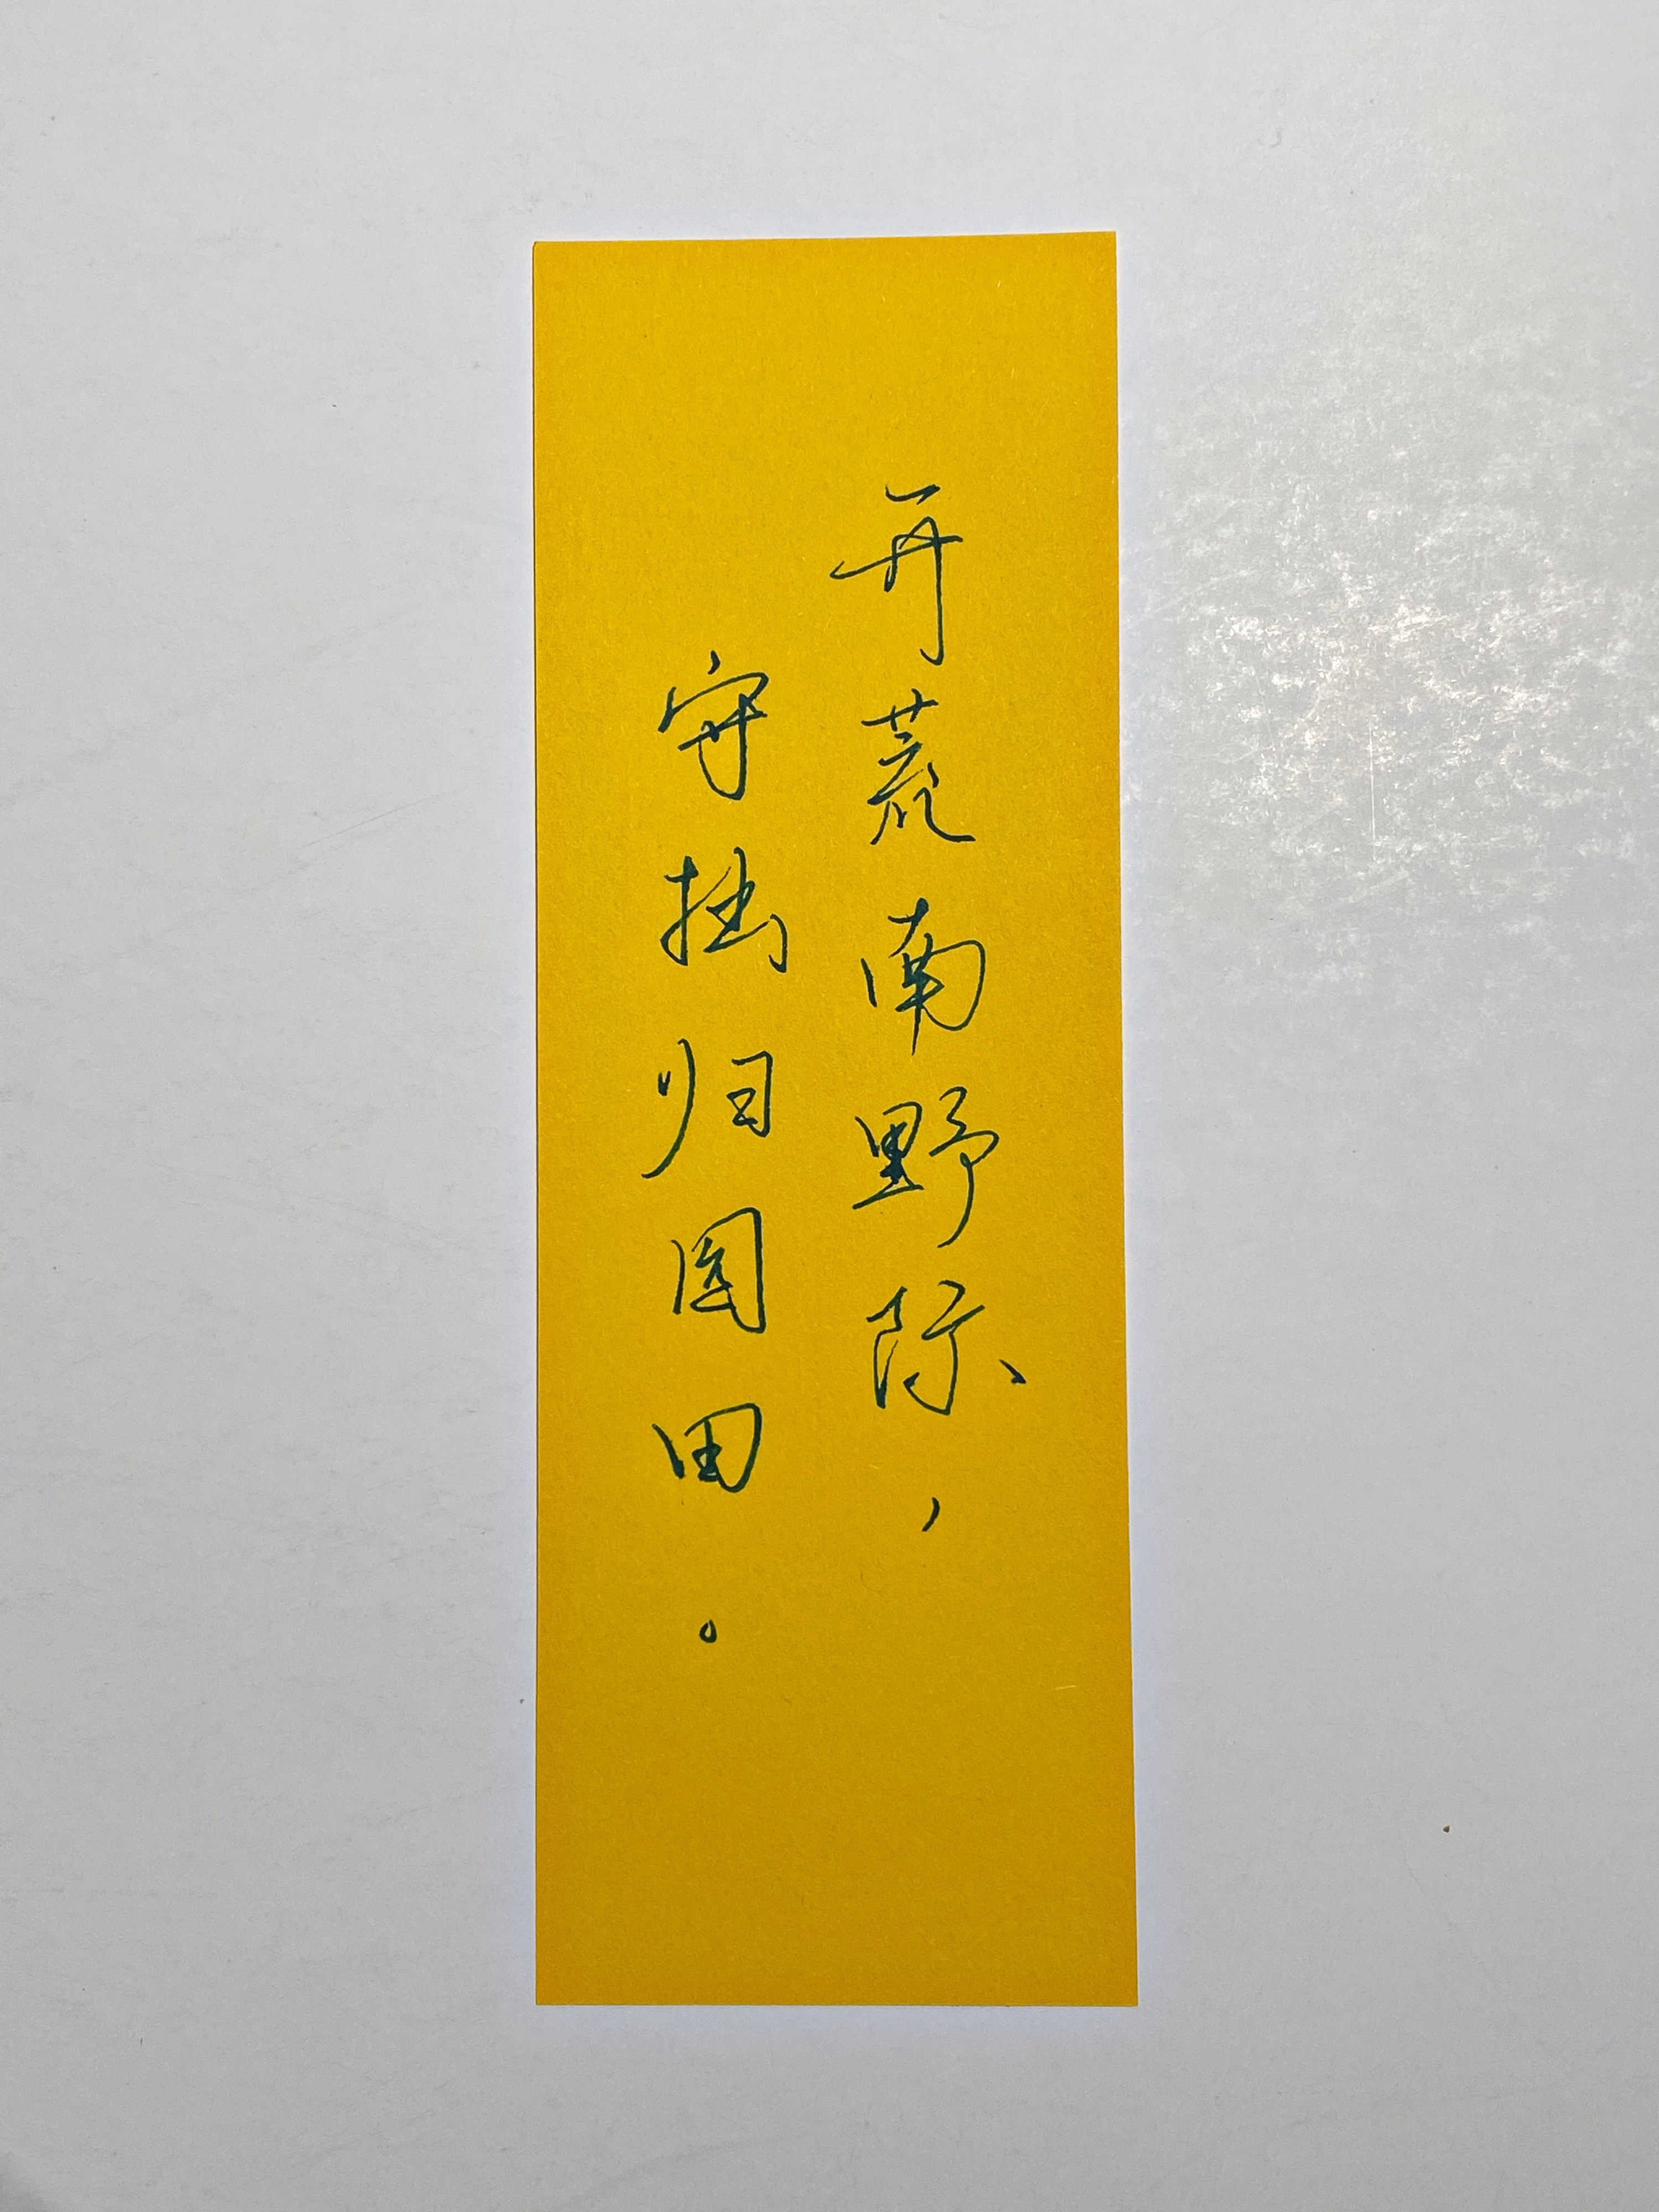 开荒南野际，
守拙归园田。